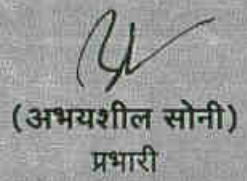 (अभयशील सोनी)
प्रभारी